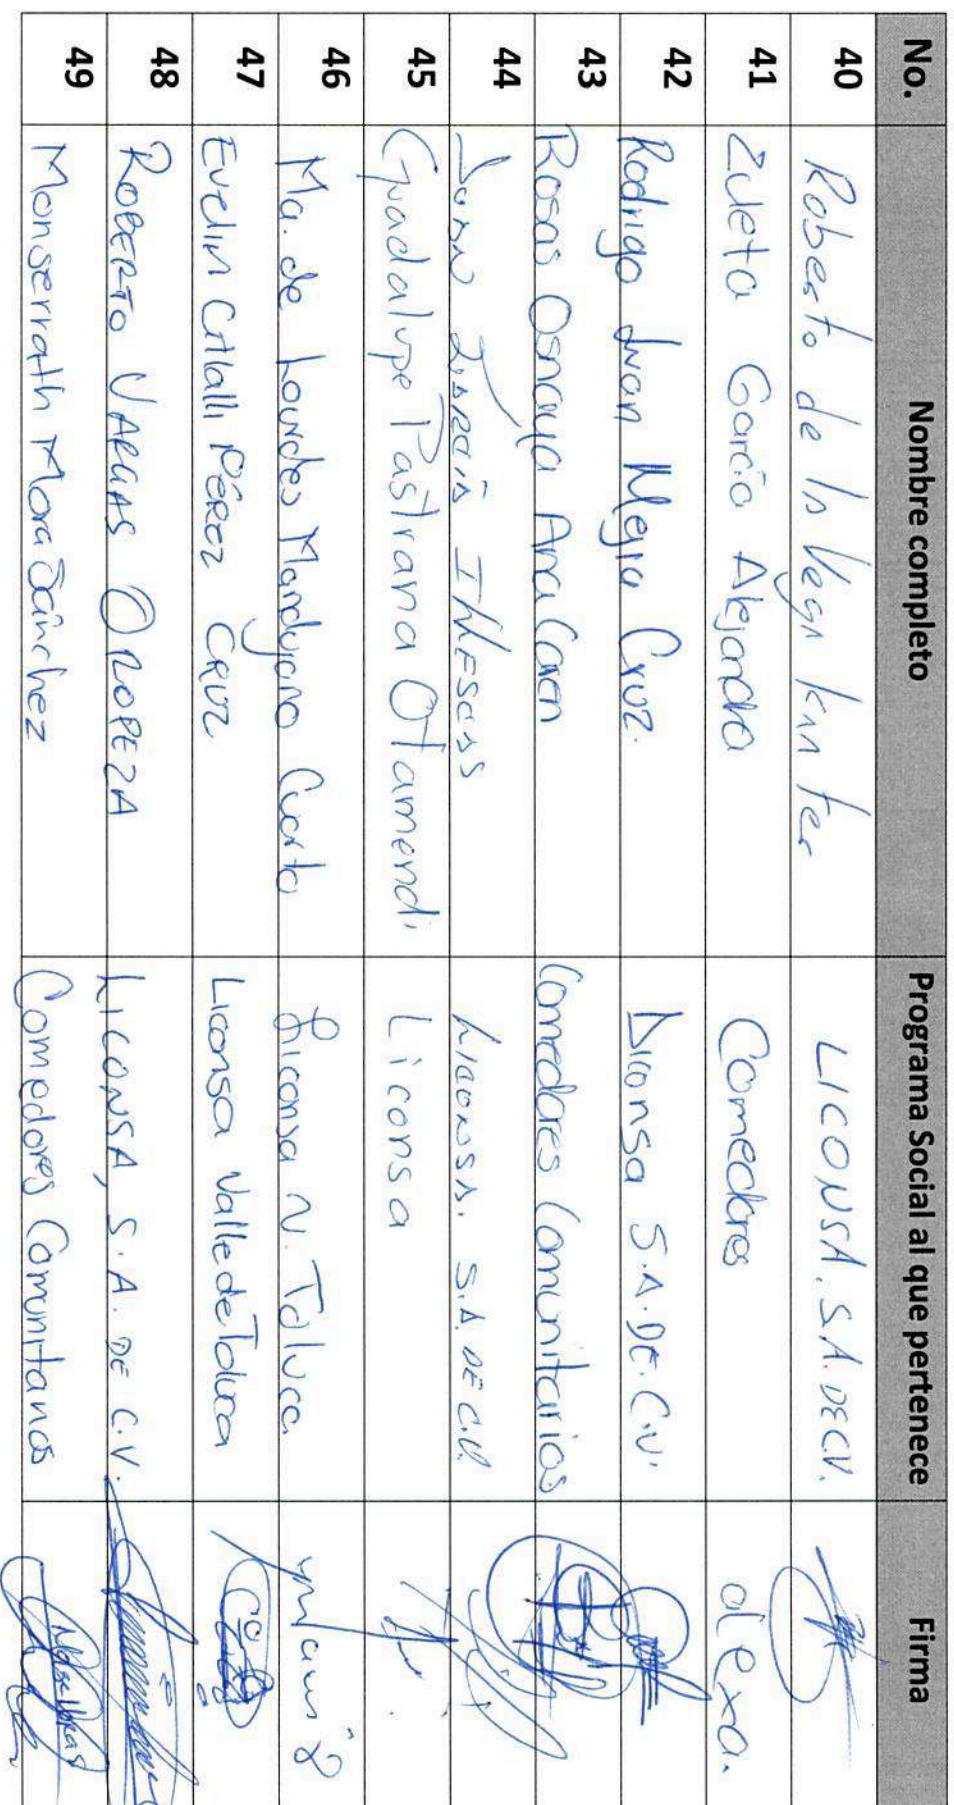 No. Nombre completo Programa Social al que pertenece Firma
40 Roberto de la Vega LICONSA. S.A. DE C.V.
41 Zuleta García Alejandra Comedores alexa.
42 Rodrigo Juan Mejia Cruz. Diconsa S.A. DE. C.V.
43 Rosas Osnaya Ana Caren Comedores Comunitarios
44 Juan LICONSA. S.A. DE C.V.
45 Guadalupe Pastrana Otamendi Liconsa
46 Ma. de Lourdes Mandujano Cuarto Liconsa V. Toluca
47 Evelin Citlalli Pérez CRUZ Liconsa Valle de Toluca
48 ROBERTO VARGAS OROPEZA LICONSA, S.A. DE C.V.
49 Monserrath Mora Sánchez Comedores Comunitarios